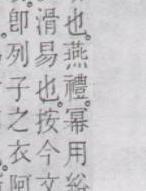 也。燕禮。冪用綌
滑易也。按今文
卽列子之衣阿